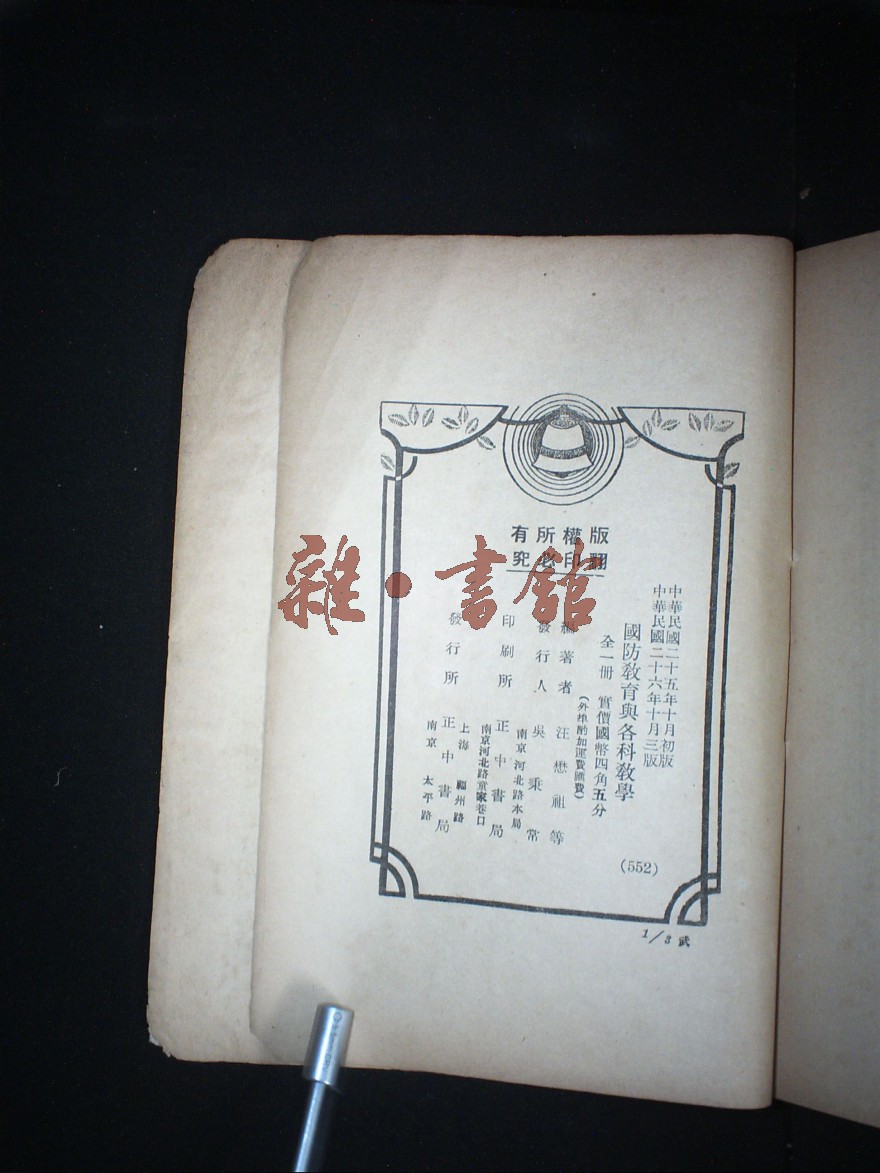 版權所有
翻印必究
中華民國二十五年十月初版
中華民國二十六年十月三版
國防教育與各科教學
全一冊 實價國幣四角五分
(外埠酌加運費匯費)
編著者 汪懋祖等
發行人 吳秉常
南京河北路本局
印刷所 正中書局
南京河北路童家巷口
發行所 正中書局
上海 福州路
南京 太平路
(552)
1/3 武
雜·書館